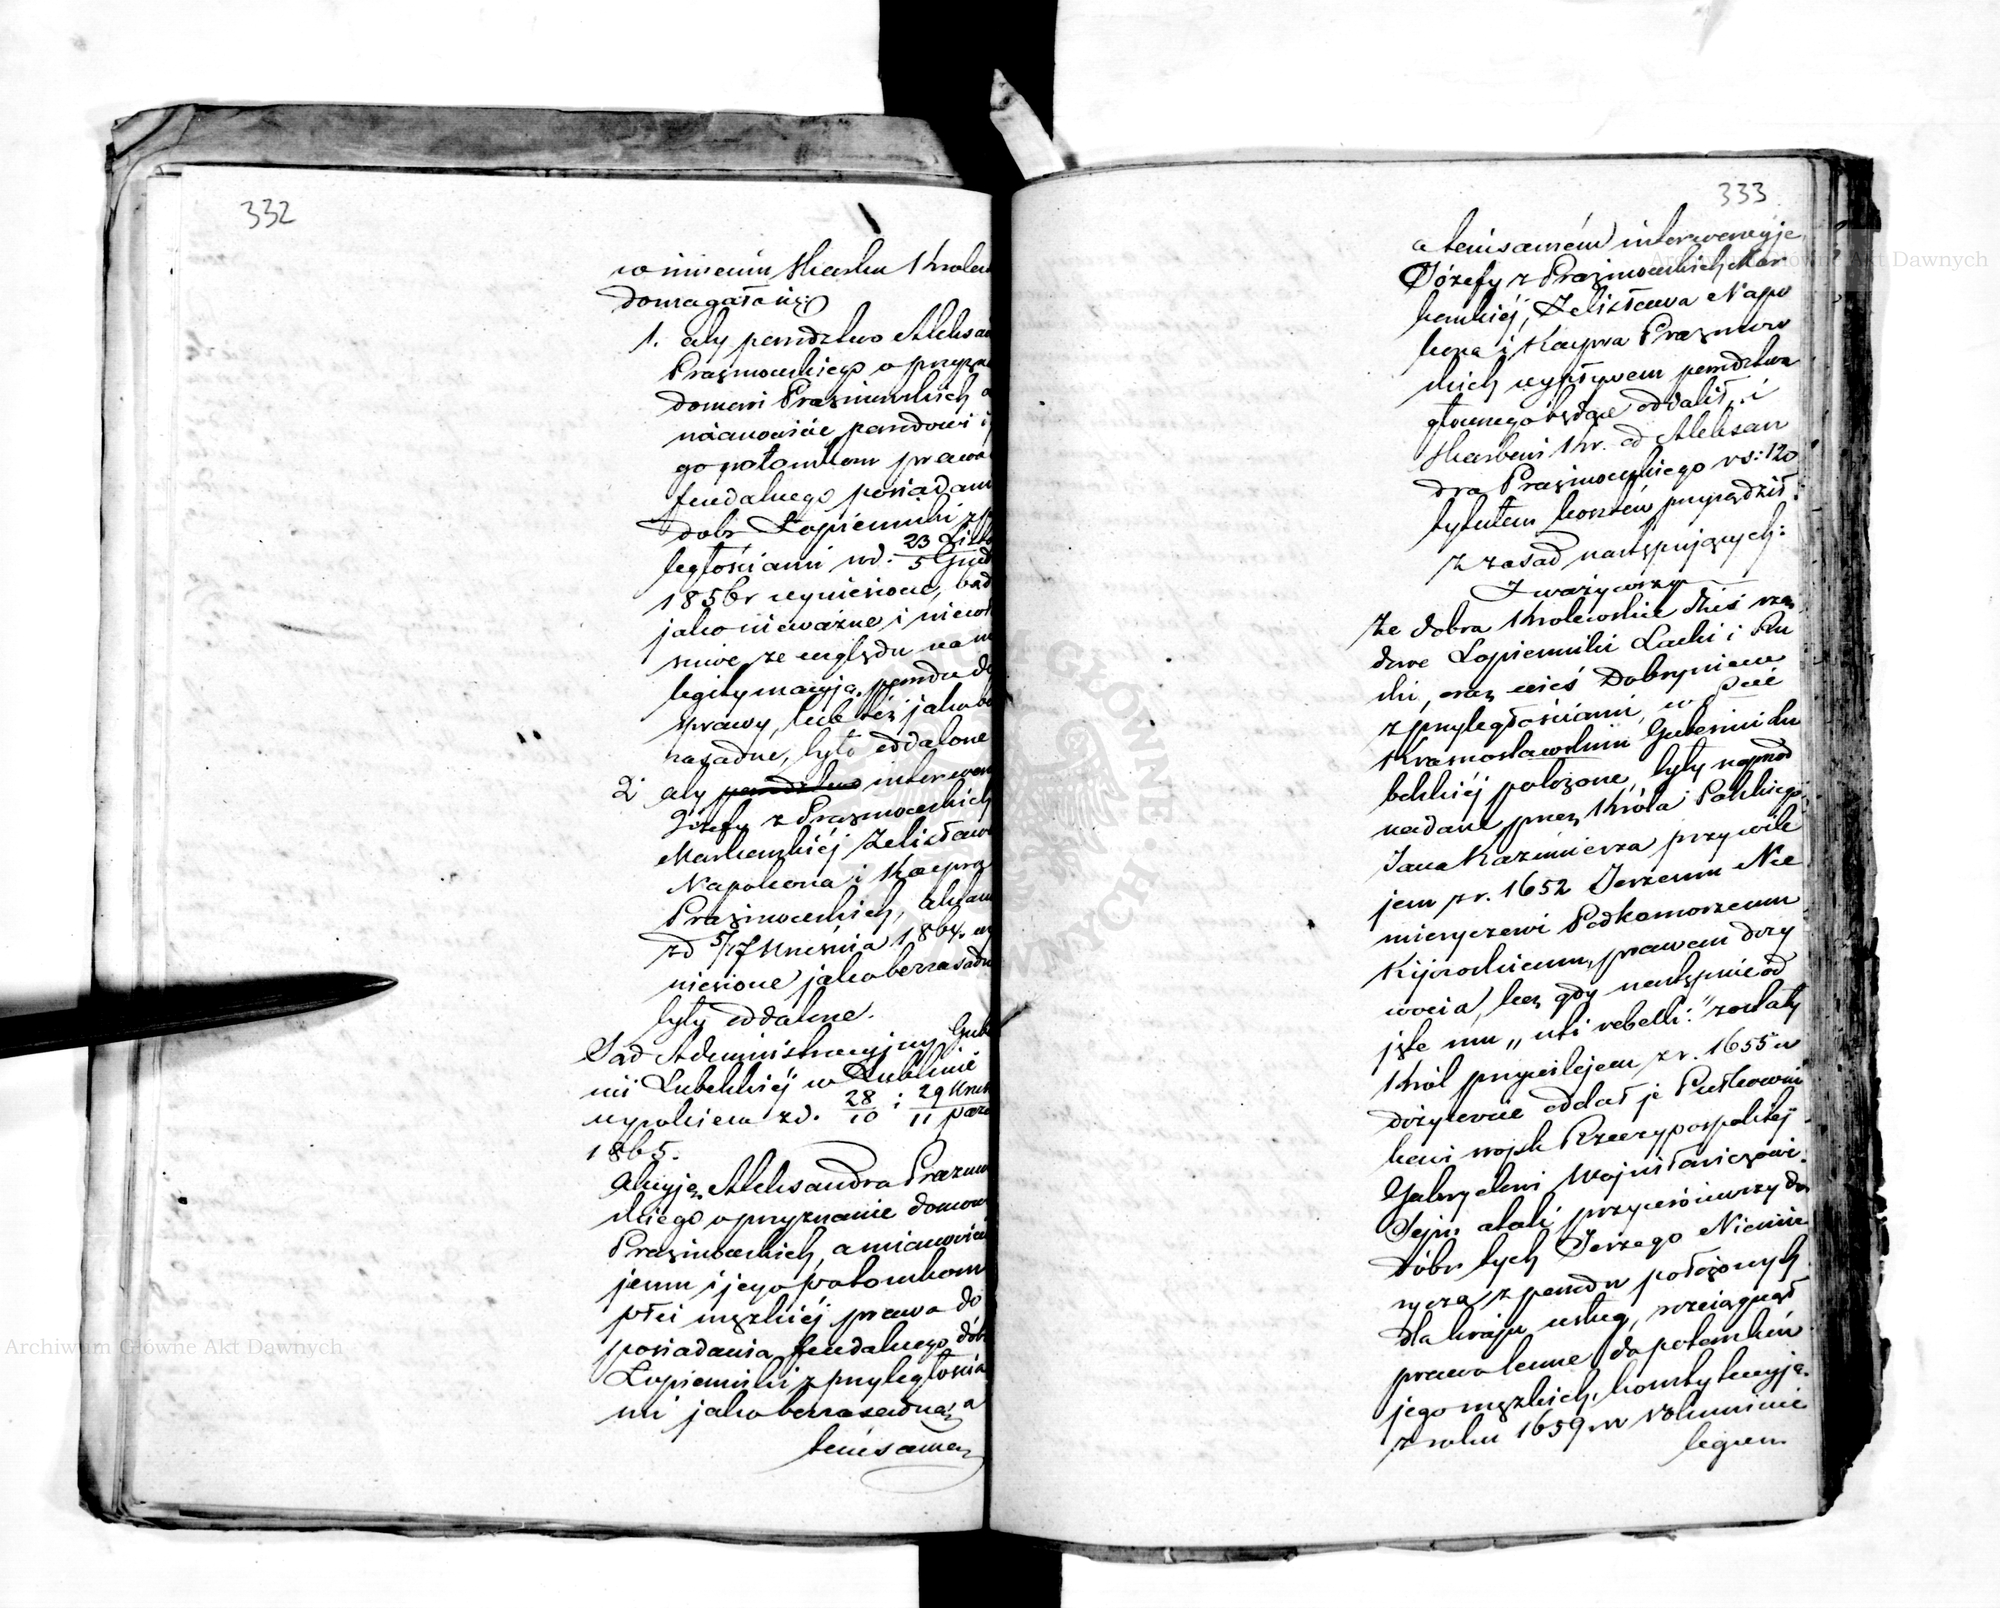 332
w imieniu Skarbu Królest
domagała się:
1. aby powództwo Aleksan
Prażmowskiego o przyzna
domowi Prażmowskich a
mianowicie powodowi i j
go potomkom prawa
feudalnego posiadani
dóbr Łopiennik z p
ległościami w d. 23/5 Listo Grud
1856 r wyniesione, bąd
jako nieważne i niewł
ściwe, ze względu na
legitymacyją powoda do
sprawy, lub też jako be
zasadne, było oddalone
2. aby powództwo interwen
Józefy z Prażmowskich
Markowskiéj Zelisława
Napoleona i Kacpra
Prażmowskich, aktam
z d 5/17 Kwietnia 1864. wy
niesione jako bezzasadne
były oddalone.
Sąd Administracyjny Gube
nii Lubelskiéj w Lublinie
wyrokiem z d. 28/10 i 29/11 Wrześ Paźd
1865.
Akcyję Aleksandra Prażmow
skiego o przyznanie domowi
Prażmowskich, a mianowicie
jemu i jego potomkom
płci męzkiéj prawa do
posiadania feudalnego dóbr
Łopiennik z przyległościa
mi jako bezzasadną, a
temsamem
333
a temsamém interwencyje
Józefy z Prażmowskich Mar
kowskiéj, Zelisława Napo
leona i Kacpra Prażmow
skich wypływem powództwa
głównego będące oddalił, i
Skarbowi Kr. od Aleksan
dra Prażmowskiego rs: 120
tytułem kosztów przysądził:
z zasad następujących:
Zważywszy
że dobra Królewskie dziś rzą
dowe Łopiennik Lacki i Ru
ski, oraz wieś Dobryniew
z przyległościami, w Pcie
Krasnostawskim Gubernii Lu
belskiéj położone, były naprzód
nadane przez Króla Polskiego
Jana Kazimierza przywile
jem z r. 1652 Jerzemu Nie
mieryczowi Podkomorzemu
Kijowskiemu, prawem doży
wocia, lecz gdy następnie od
jęte mu „uti rebelli." zostały
Król przywilejem z r. 1655 w
dożywocie oddał je Pułkowni
kowi wojsk Rzeczypospolitej
Gabryelowi Wojniłowiczowi.
Sejm atoli przywróciwszy do
dóbr tych Jerzego Niemie
rycza z powodu położonych
dla kraju usług, rozciągnął
prawo lenne do potomków
jego męzkich, konstytucyją
z roku 1659. w Voluminie
legum.
Archiwum Główne Akt Dawnych
Archiwum Główne Akt Dawnych